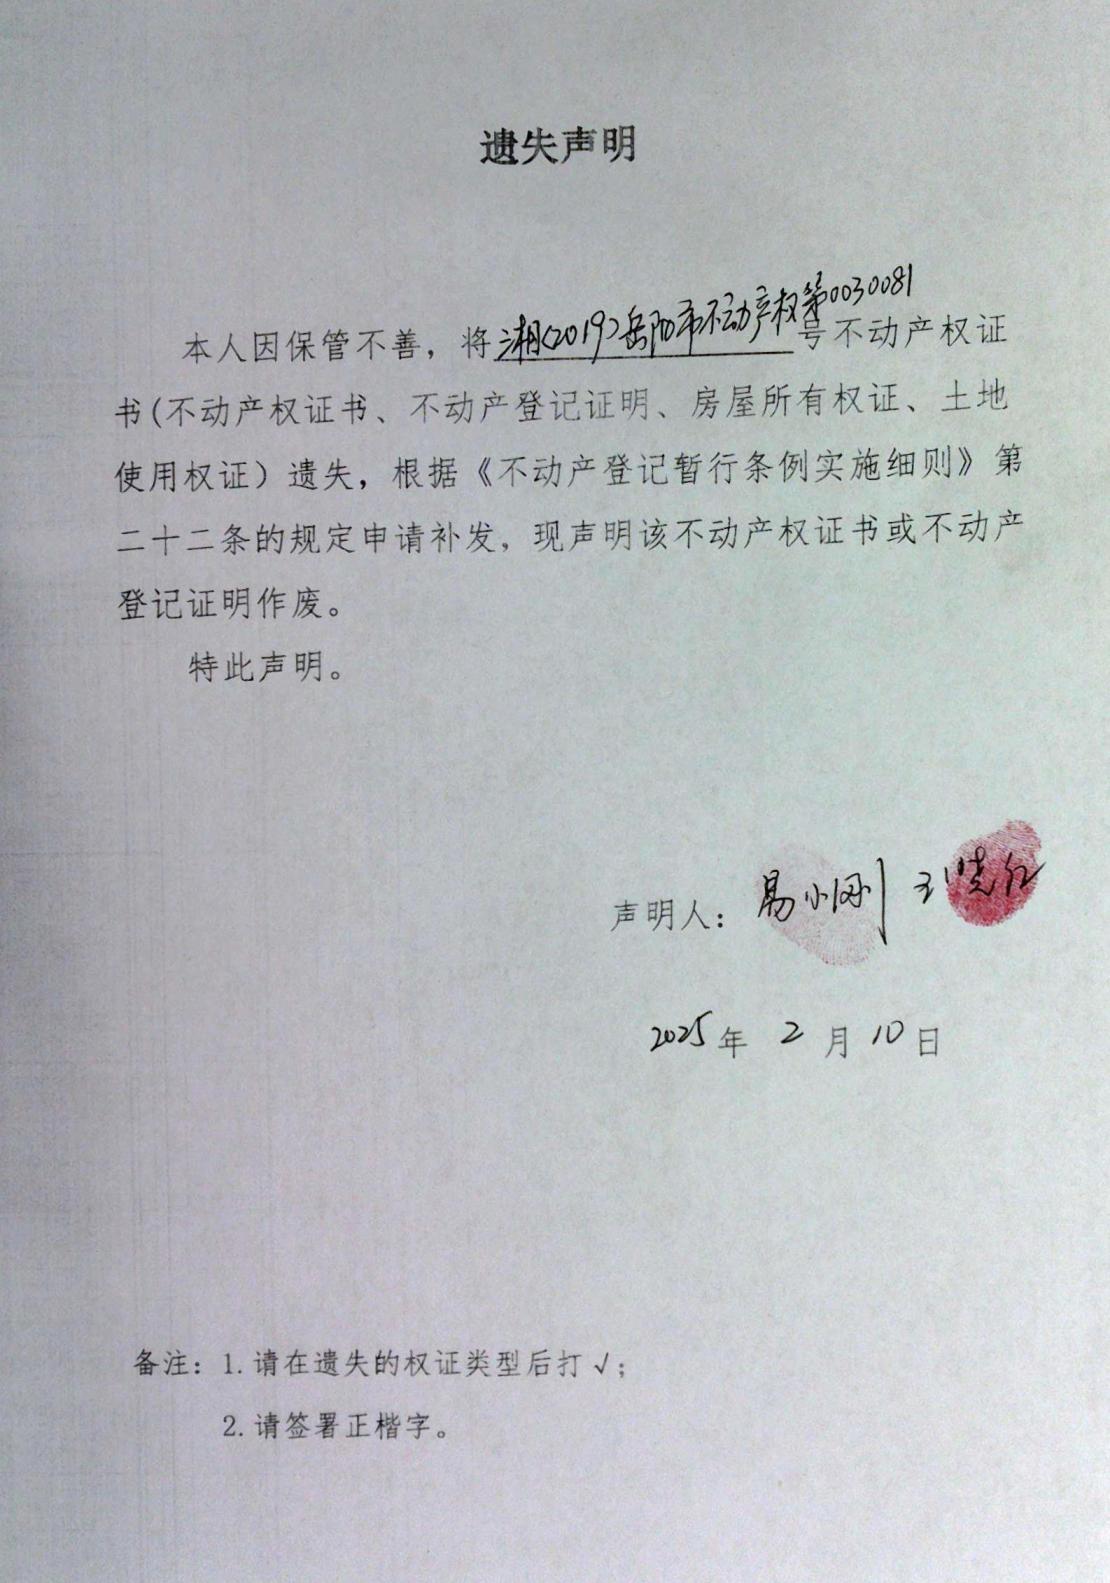 遗失声明
本人因保管不善，将湘(2019)岳阳市不动产权第0030081号不动产权证
书(不动产权证书、不动产登记证明、房屋所有权证、土地
使用权证）遗失，根据《不动产登记暂行条例实施细则》第
二十二条的规定申请补发，现声明该不动产权证书或不动产
登记证明作废。
特此声明。
声明人：易小刚 王晓红
2025年 2 月 10 日
备注：1.请在遗失的权证类型后打√；
2.请签署正楷字。